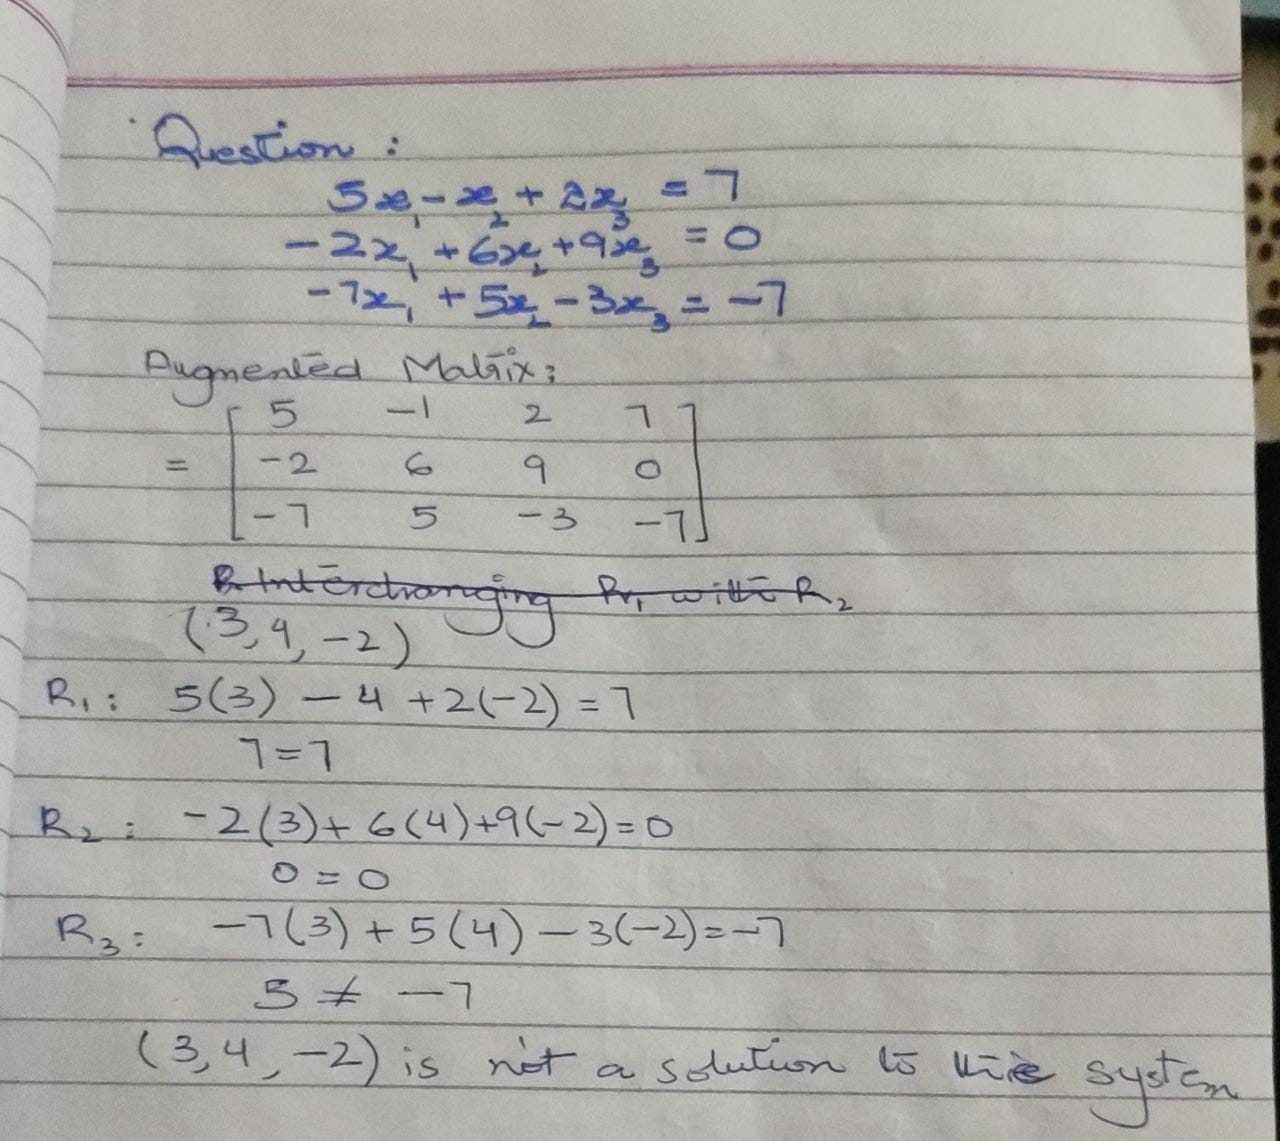 Question :
5x₁ - x₂ + 2x₃ = 7
-2x₁ + 6x₂ + 9x₃ = 0
-7x₁ + 5x₂ - 3x₃ = -7
Augmented Matrix:
5 -1 2 7
= -2 6 9 0
-7 5 -3 -7
R Interchanging R₁ with R₂
(3, 4, -2)
R₁: 5(3) - 4 + 2(-2) = 7
7 = 7
R₂: -2(3) + 6(4) + 9(-2) = 0
0 = 0
R₃: -7(3) + 5(4) - 3(-2) = -7
5 ≠ -7
(3, 4, -2) is not a solution to this system